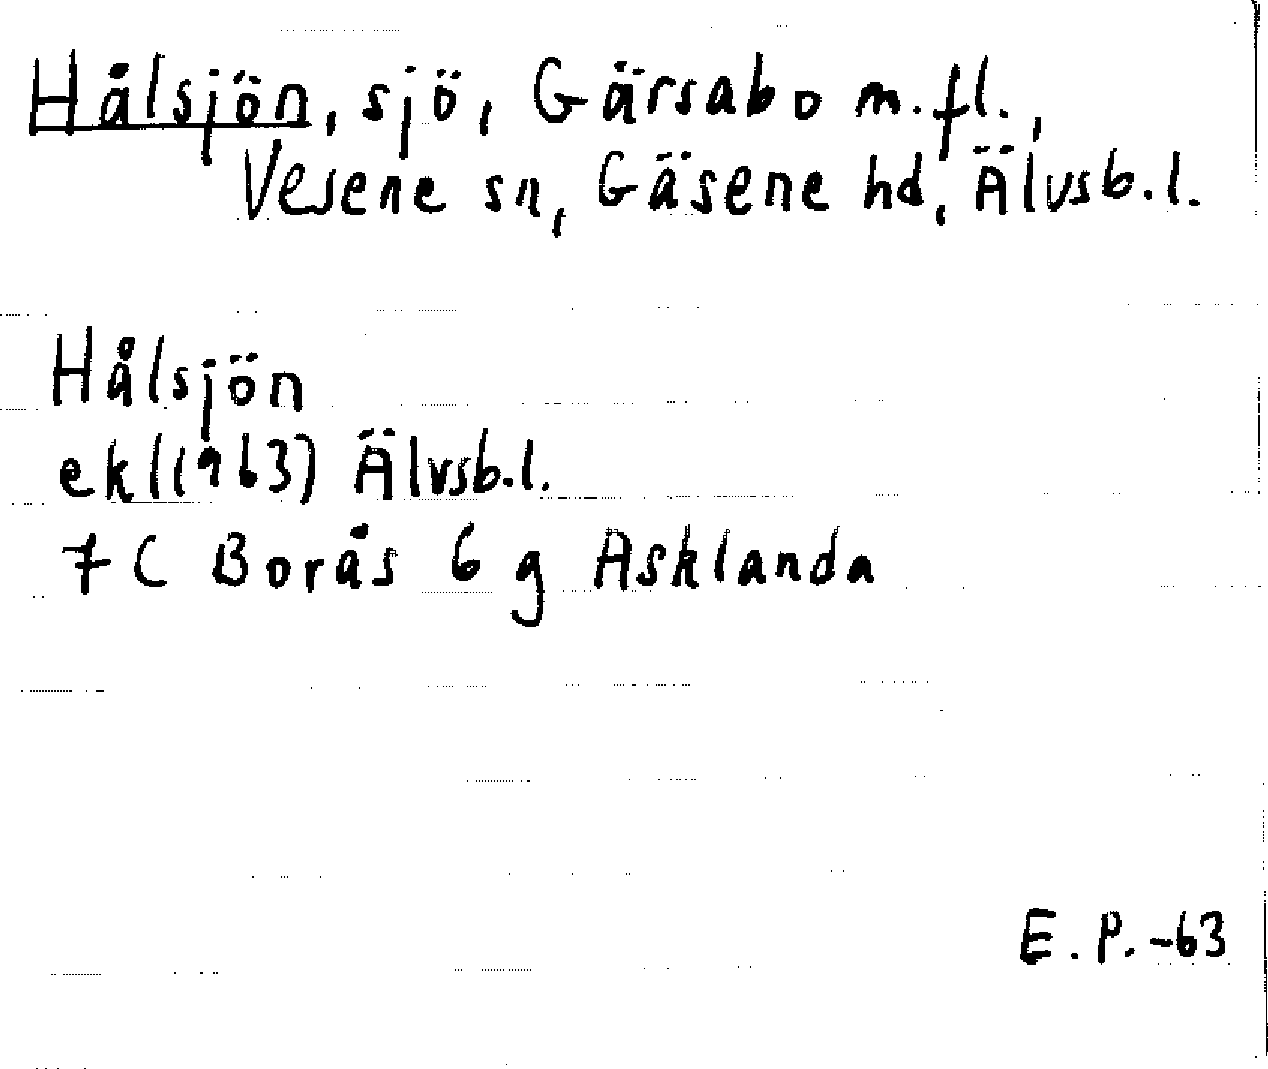 Hålsjön, sjö, Gärsabo m.fl.,
Vesene sn, Gäsene hd, Älvsb.l.
Hålsjön
ekl(1963) Älvsb.l.
7 C Borås 6 g Asklanda
E.P. -63